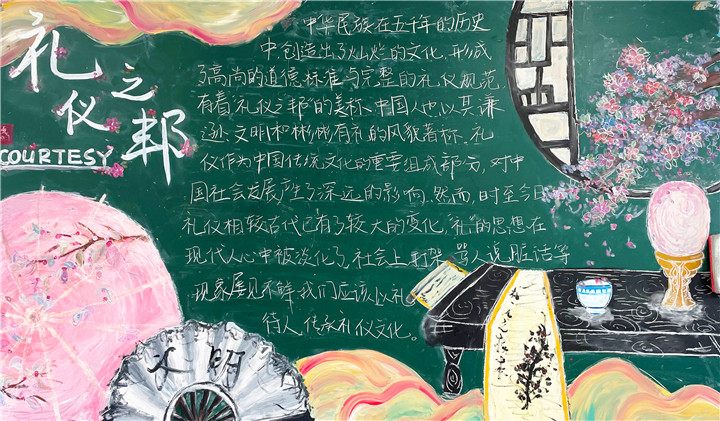 礼仪之邦
COURTESY
中华民族在五千年的历史
中,创造出了灿烂的文化,形成
了高尚的道德标准与完整的礼仪规范,
有着"礼仪之邦"的美称、中国人也以其谦
逊文明和彬彬有礼的风貌著称。礼
仪作为中国传统文化的重要组成部分,对中
国社会发展产生了深远的影响。然而,时至今日
礼仪相较古代已有了较大的变化,"礼"的思想在
现代人心中被淡化了,社会上打架、骂人说脏话等
现象屡见不鲜,我们应该以礼
待人,传承礼仪文化。
文明